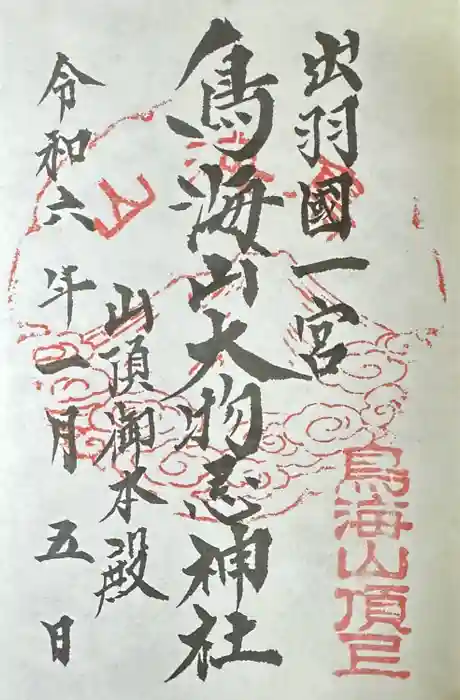 出羽國一宮
鳥海山大物忌神社
山頂御本殿
令和六年一月五日
鳥海山
鳥海山頂